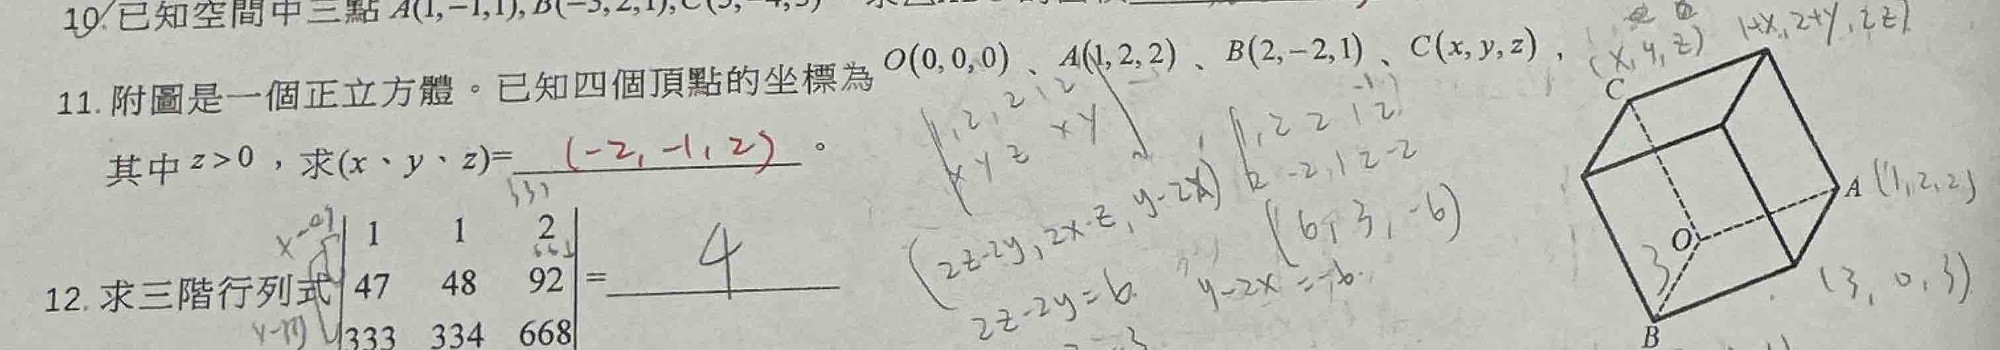 10. 已知空間中三點 A(1,-1,1), B(-3,2,1), C(
11. 附圖是一個正立方體。已知四個頂點的坐標為 O(0,0,0)、A(1,2,2)、B(2,-2,1)、C(x,y,z),
其中 z>0,求(x、y、z)= (-2,-1,2) 。
12. 求三階行列式 | 1 1 2 | = 4
47 48 92
333 334 668
1,2,2,1,2
x y z x y
1,2 2 1 2
2 -2,1 2 -2
(2z-2y, 2x-z, y-2x)
(6, 3, -6)
2z-2y=6
y-2x=-6.
(x,y,z)
1+x, 2+y, 2+z)
C
A (1,2,2)
O
3
(3, 0, 3)
B